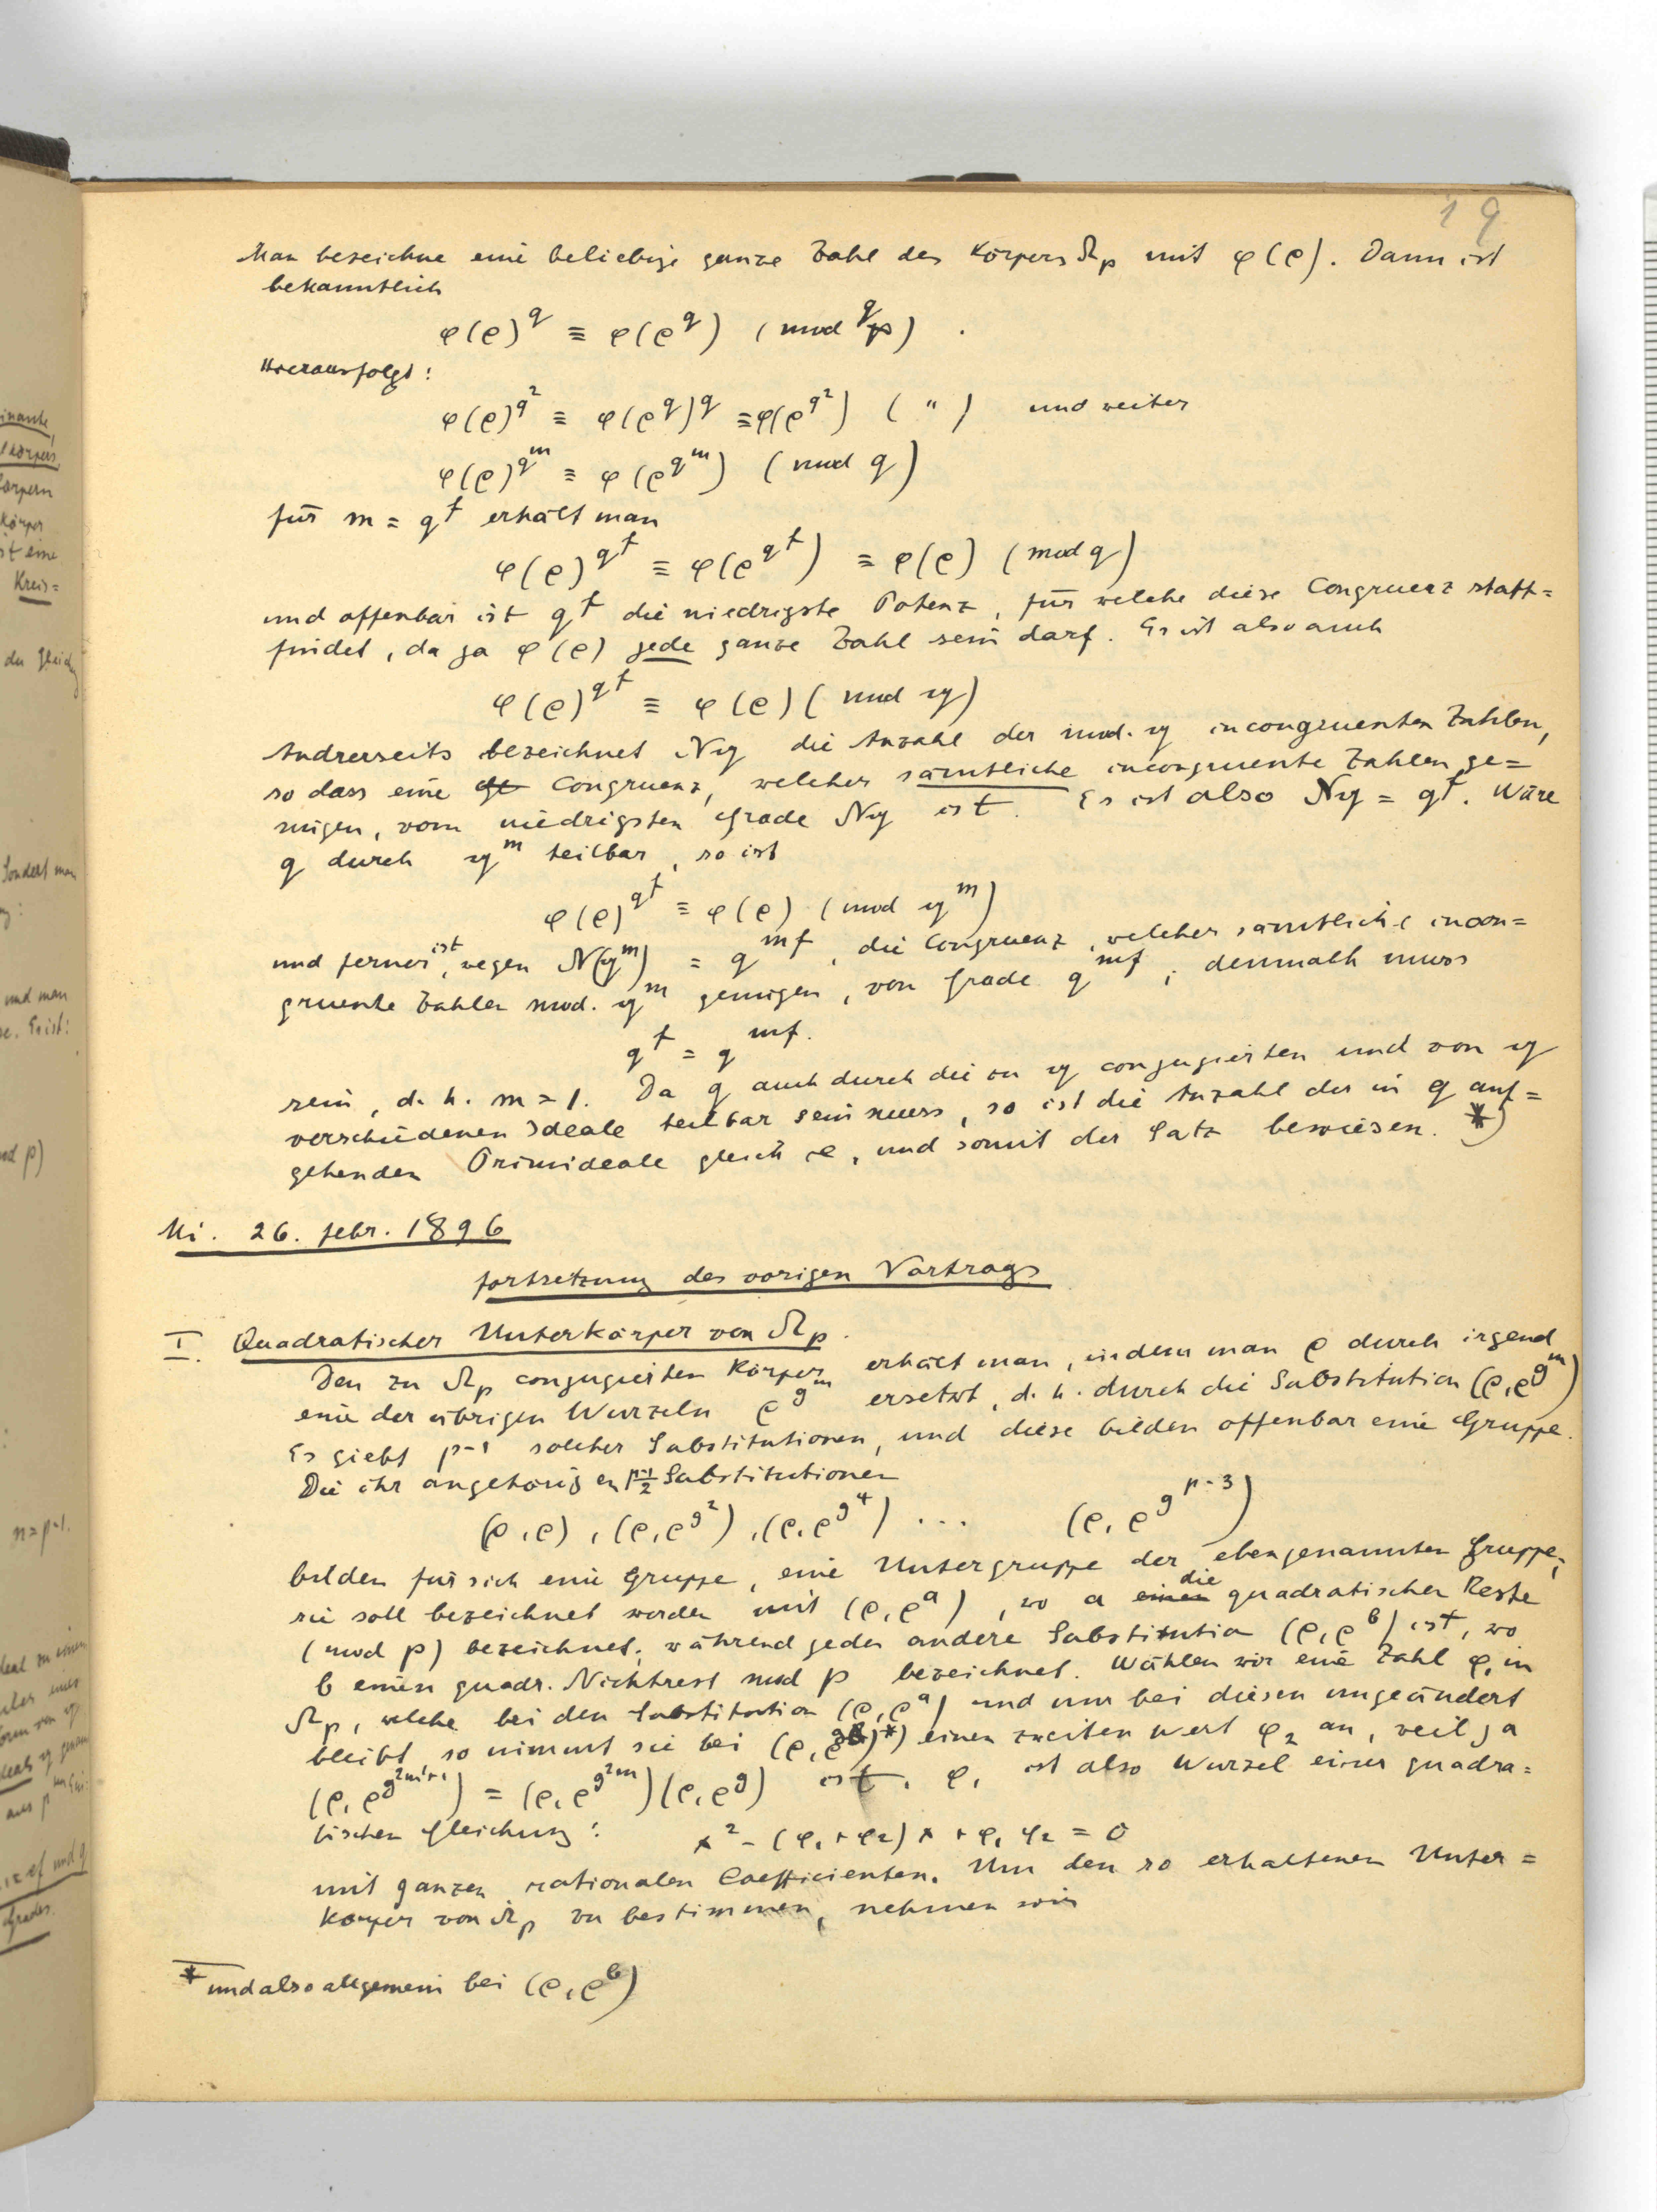 19
Man bezeichne eine beliebige ganze Zahl des Körpers Ω_p mit φ(ρ). Dann ist
bekanntlich
φ(ρ)^q ≡ φ(ρ^q) (mod q) .
Hieraus folgt:
φ(ρ)^{q^2} ≡ φ(ρ^q)^q ≡ φ(ρ^{q^2}) ( " ) und weiter
φ(ρ)^{q^m} ≡ φ(ρ^{q^m}) (mod q)
für m = q^f erhält man
φ(ρ)^{q^f} ≡ φ(ρ^{q^f}) ≡ φ(ρ) (mod q)
und offenbar ist q^f die niedrigste Potenz, für welche diese Congruenz statt=
findet, da ja φ(ρ) jede ganze Zahl sein darf. Es ist also auch
φ(ρ)^{q^f} ≡ φ(ρ) (mod 𝔮)
Andrerseits bezeichnet N𝔮 die Anzahl der mod. 𝔮 incongruenten Zahlen,
so dass eine Congruenz, welcher sämtliche incongruente Zahlen ge=
nügen, vom niedrigsten Grade N𝔮 ist. Es ist also N𝔮 = q^f. Wäre
q durch 𝔮^m teilbar, so ist
φ(ρ)^{q^f} ≡ φ(ρ) (mod 𝔮^m)
und ferner ist, wegen N(𝔮^m) = q^{mf}, die Congruenz, welcher sämtliche incon=
gruente Zahlen mod. 𝔮^m genügen, von Grade q^{mf}; demnach muss
q^f = q^{mf}.
sein, d. h. m = 1. Da q auch durch die zu 𝔮 conjugierten und von 𝔮
verschiedenen Ideale teilbar sein muss, so ist die Anzahl der in q auf=
gehenden Primideale gleich e, und somit der Satz bewiesen. *)
Mi. 26. Febr. 1896
Fortsetzung des vorigen Vortrags
I. Quadratischer Unterkörper von Ω_p.
Den zu Ω_p conjugierten Körper erhält man, indem man ρ durch irgend
eine der übrigen Wurzeln ρ^{g^m} ersetzt, d. h. durch die Substitution (ρ, ρ^{g^m})
Es giebt p-1 solcher Substitutionen, und diese bilden offenbar eine Gruppe.
Die ihr angehörigen (p-1)/2 Substitutionen
(ρ, ρ), (ρ, ρ^{g^2}), (ρ, ρ^{g^4}) ... (ρ, ρ^{g^{p-3}})
bilden für sich eine Gruppe, eine Untergruppe der ebengenannten Gruppe;
sie soll bezeichnet werden mit (ρ, ρ^a), wo a einen die quadratischen Reste
(mod p) bezeichnet, während jede andere Substitution (ρ, ρ^b) ist, wo
b einen quadr. Nichtrest mod p bezeichnet. Wählen wir eine Zahl φ_1 in
Ω_p, welche bei den Substitution (ρ, ρ^a) und nur bei diesen ungeändert
bleibt, so nimmt sie bei (ρ, ρ^g)*) einen zweiten Wert φ_2 an, weil ja
(ρ, ρ^{g^{2m+1}}) = (ρ, ρ^{g^{2m}})(ρ, ρ^g) ist. φ_1 ist also Wurzel einer quadra=
tischen Gleichung:
x^2 - (φ_1 + φ_2) x + φ_1 φ_2 = 0
mit ganzen rationalen Coefficienten. Um den so erhaltenen Unter=
körper von Ω_p zu bestimmen, nehmen wir
* und also allgemein bei (ρ, ρ^b)